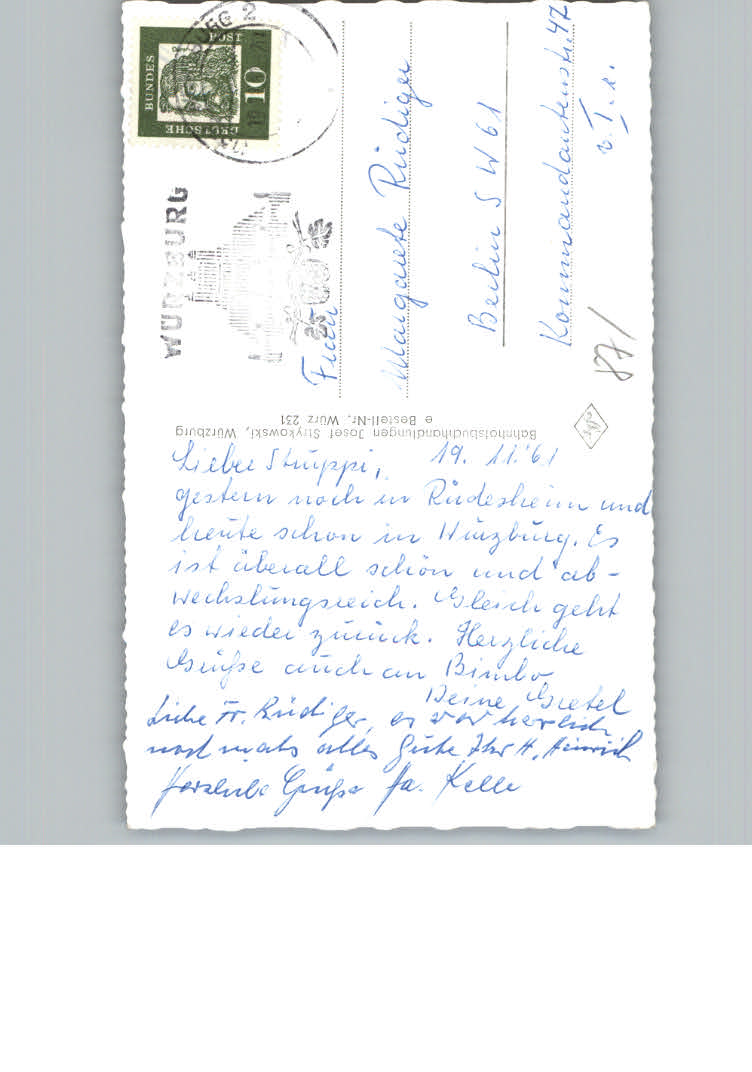 Liebe Struppi, 19. 11. 61
gestern noch in Rüdesheim und
heute schon in Würzburg. Es
ist überall schön und ab-
wechslungsreich. Gleich geht
es wieder zurück. Herzliche
Grüße auch an Bimbo
Deine Gretel
Liebe Fr. Rüdiger, es war herrlich
nochmals alles Gute Ihr H. Heinrich
Herzliche Grüße Fa. Kelle
Bahnhofsbuchhandlungen Josef Strykowski, Würzburg
e Bestell-Nr. Würz 231
WÜRZBURG
DEUTSCHE
BUNDES
POST
10
Frau
Margarete Rüdiger
Berlin SW 61
Kommandantenstr. 47
v. I. r.
87/